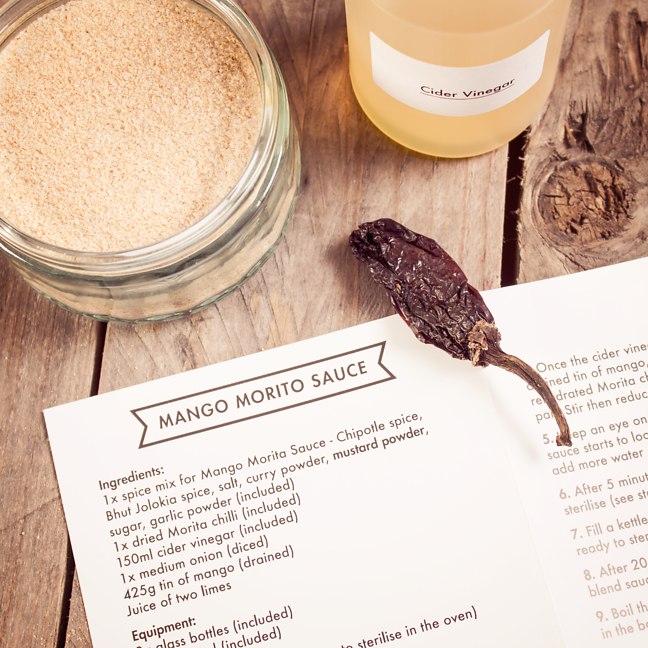 Cider Vinegar
MANGO MORITO SAUCE
Ingredients:
1x spice mix for Mango Morita Sauce - Chipotle spice,
Bhut Jolokia spice, salt, curry powder, mustard powder,
sugar, garlic powder (included)
1x dried Morita chilli (included)
150ml cider vinegar (included)
1x medium onion (diced)
425g tin of mango (drained)
Juice of two limes
Equipment:
glass bottles (included)
(included)
to sterilise in the oven)
Once the cider vine
tin of mango,
Morita ch
Stir then reduc
5. an eye on
sauce starts to loo
add more water
6. After 5 minut
sterilise (see st
7. Fill a kettle
ready to ster
8. After 20
blend sauc
9. Boil th
in the b